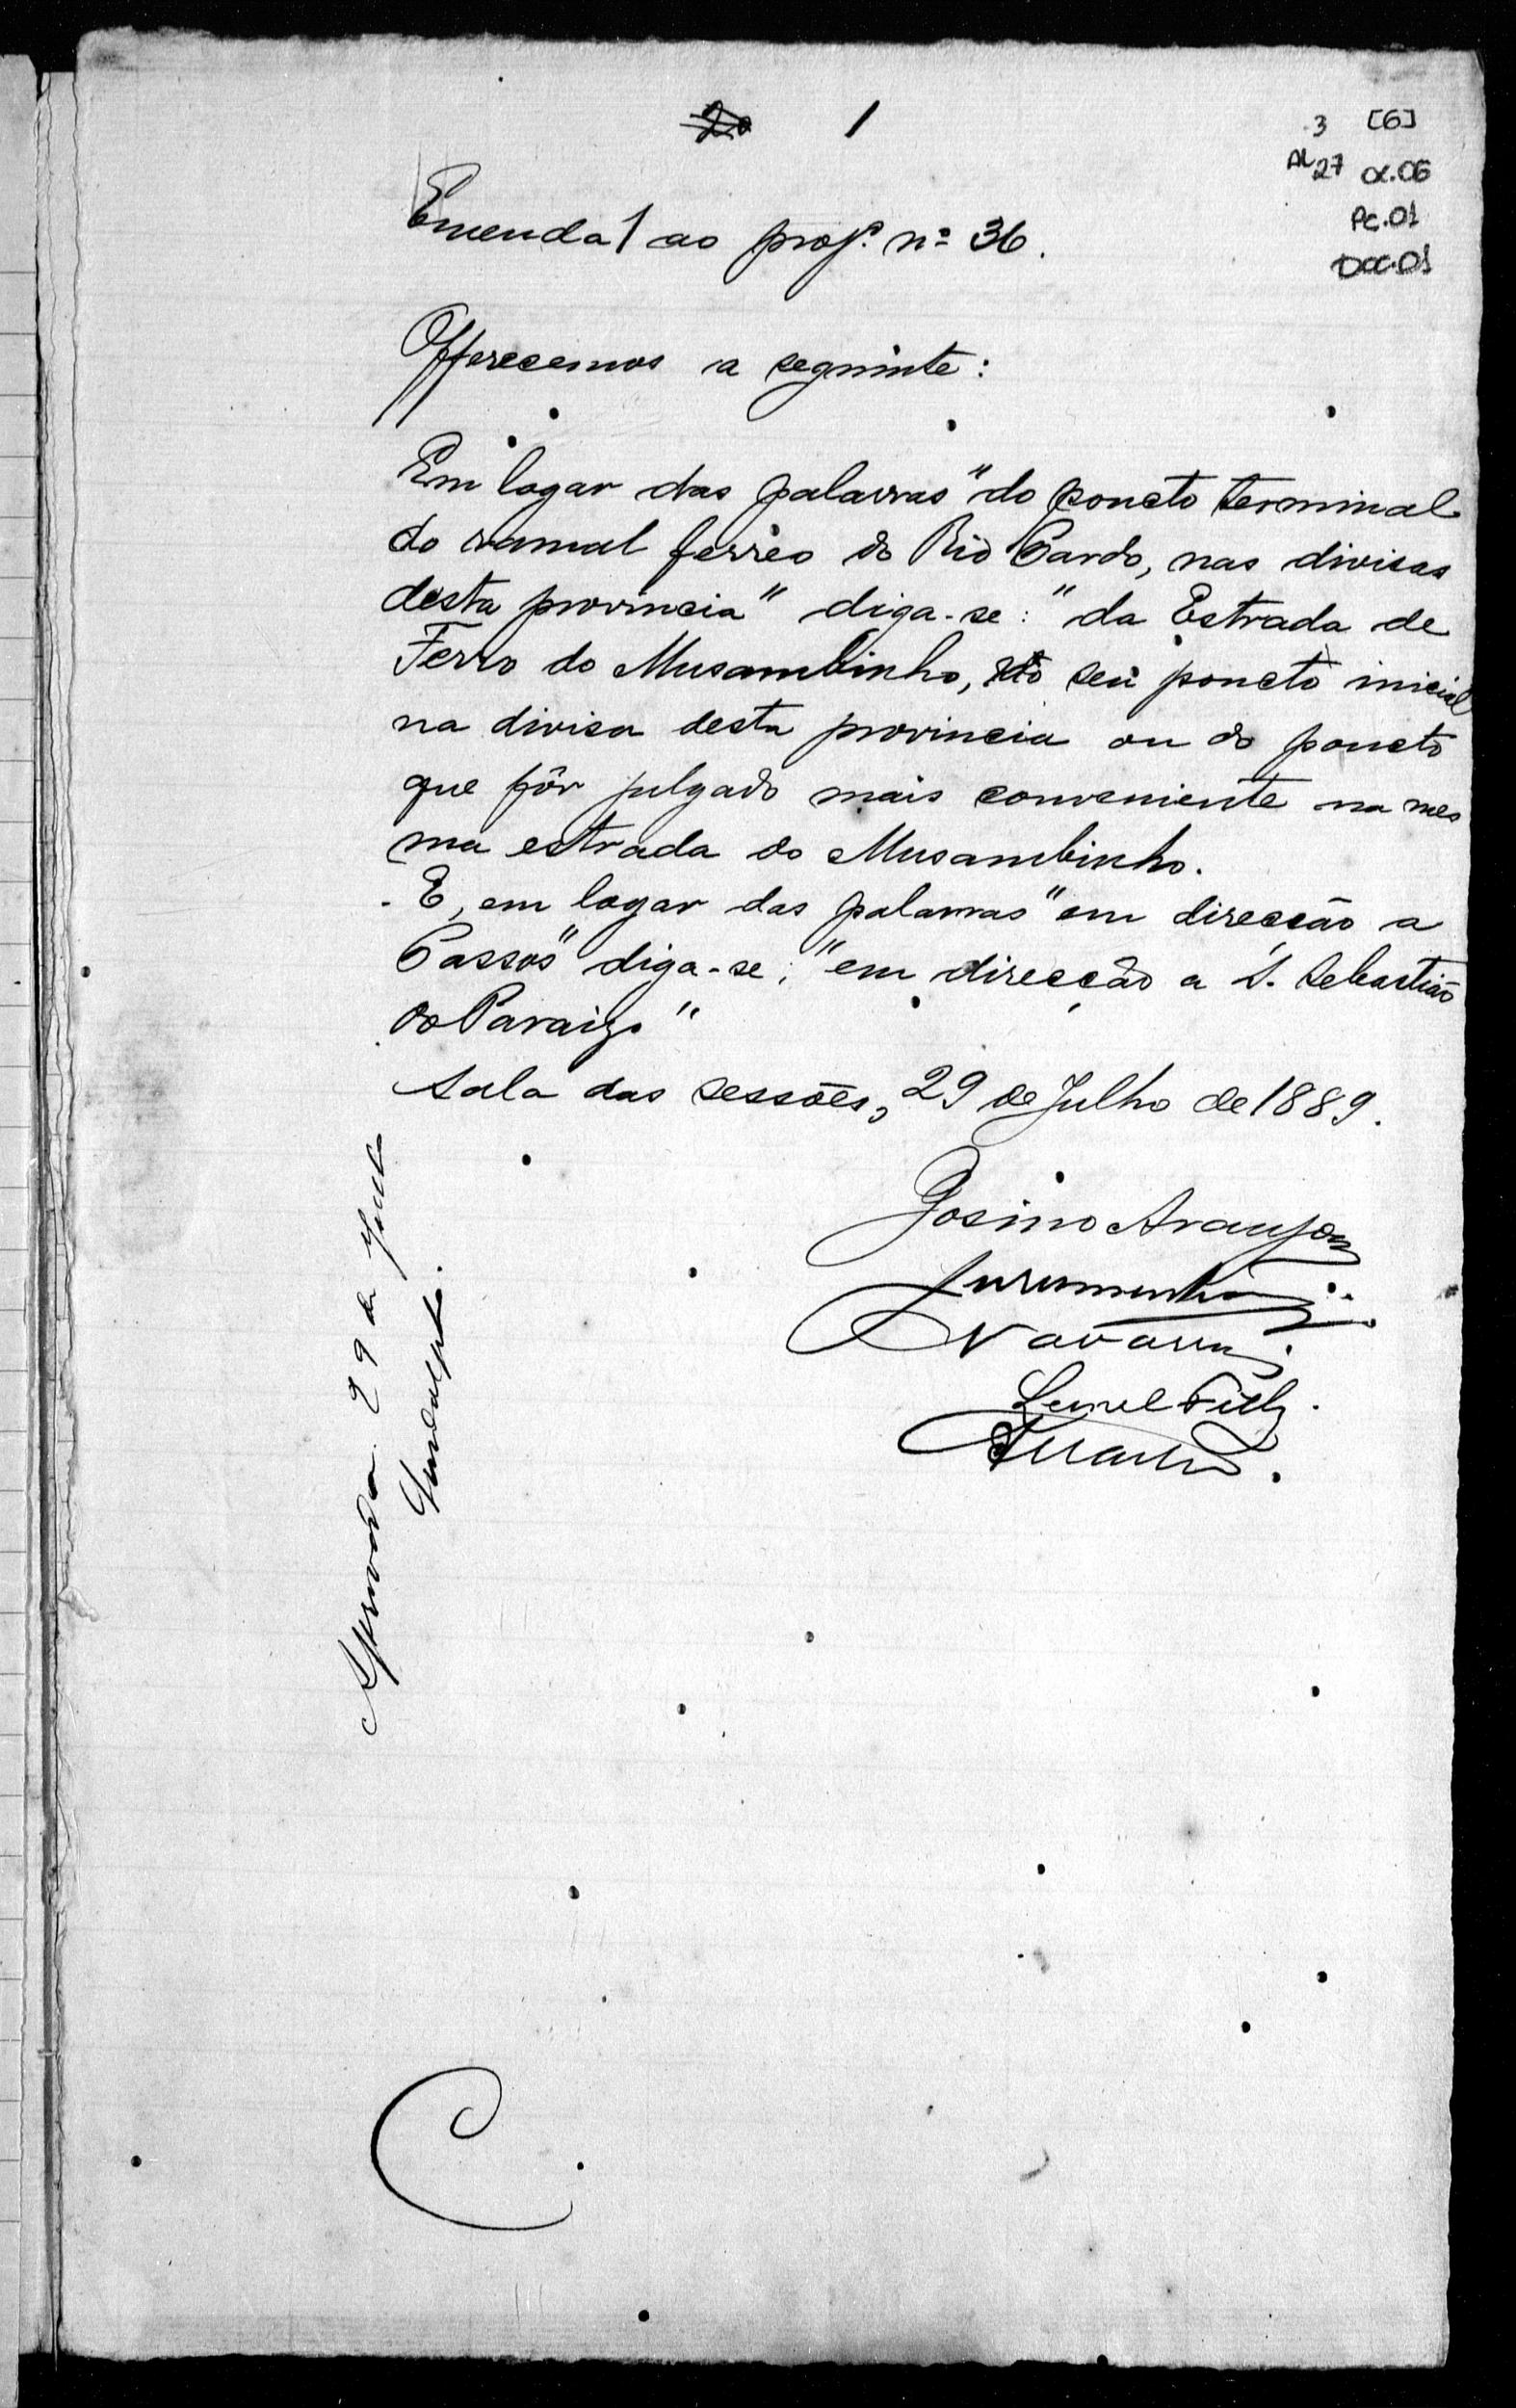 1
3 [6]
AL 27 CX.06
PC.01
DOC.01
Emenda 1 ao proj.º nº 36.
Offerecemos a seguinte:
Em logar das palavras "do poncto terminal
do ramal ferreo do Rio Pardo, nas divisas
desta provincia" diga-se: "da Estrada de
Ferro do Musambinho, do seu poncto inicial
na divisa desta provincia ou do poncto
que fôr julgado mais conveniente na mes
ma estrada do Musambinho.
E, em logar das palavras "em direcção a
Passos" diga-se: "em direcção a S. Sebastião
do Paraizo"
Sala das sessões, 29 de Julho de 1889.
Josino Araujo
Jurumenha
Navarro
Lemos Filho.
Approvada. 29 de Julho
C